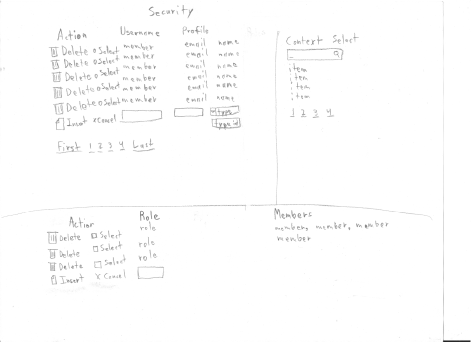 Security
Action Username Profile
Delete Select member email name
Delete Select member email name
Delete Select member email name
Delete Select member email name
Delete Select member email name
Insert x Cancel
type
First 1 2 3 4 Last
Context Select
Item
Item
Item
Item
1 2 3 4
Action Role
Delete Select role
Delete Select role
Delete Select role
Insert x Cancel
Members
member, member, member
member